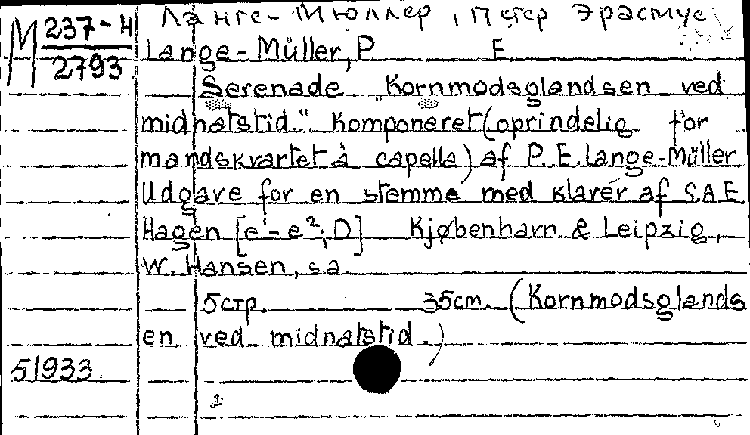 М 237-Н
2793
Ланге-Мюллер, Петер Эрасмус
Lange-Müller, P E
Serenade „Kornmodsglandsen ved
midnatstid." Komponeret (oprindelig for
mandskvartet à capella) af P.E. Lange-Müller
Udgave for en stemme med klaver af S.A.E.
Hagen [e¹-e²; D] Kjøbenharn & Leipzig,
W. Hansen, s.a.
5 стр. 35cm. (Kornmodsglands
en ved midnatstid.)
51933
1